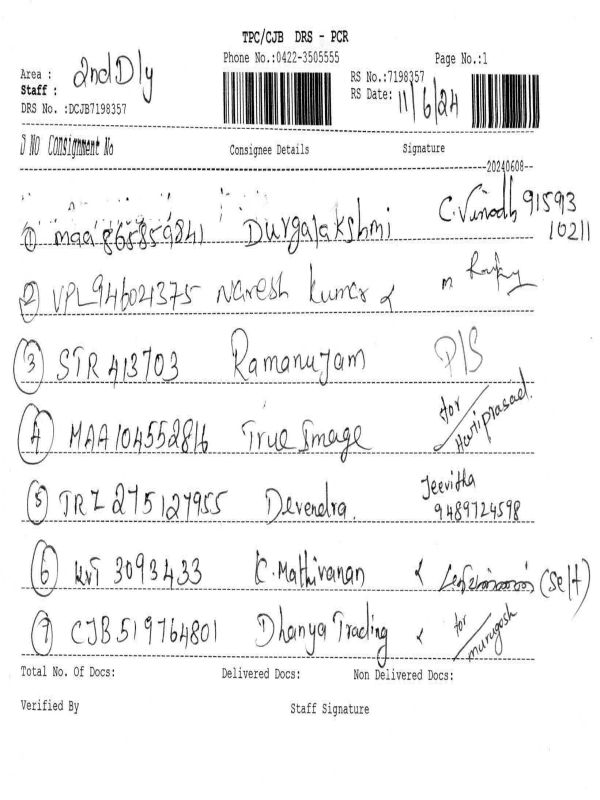 TPC/CJB DRS - PCR
Phone No.:0422-3505555 Page No.:1
Area : 2nd Dly
Staff :
RS No.:7198357
RS Date: 11/6/24
DRS No. :DCJB7198357
S NO Consignment No Consignee Details Signature
20240608
1 maa 865859841 Durgalakshmi C.Vinodh 91593
10211
2 VPL946021375 Naresh kumar
3 STR 413703 Ramanujam P/S
4 MAA104552816 True Image for Hariprasad.
5 TRZ 275127955 Devendra. Jeevitha
9489724598
6 KVT 3093433 K.Mathivanan (Self)
7 CJB519764801 Dhanya Trading for murugesh
Total No. Of Docs: Delivered Docs: Non Delivered Docs:
Verified By Staff Signature